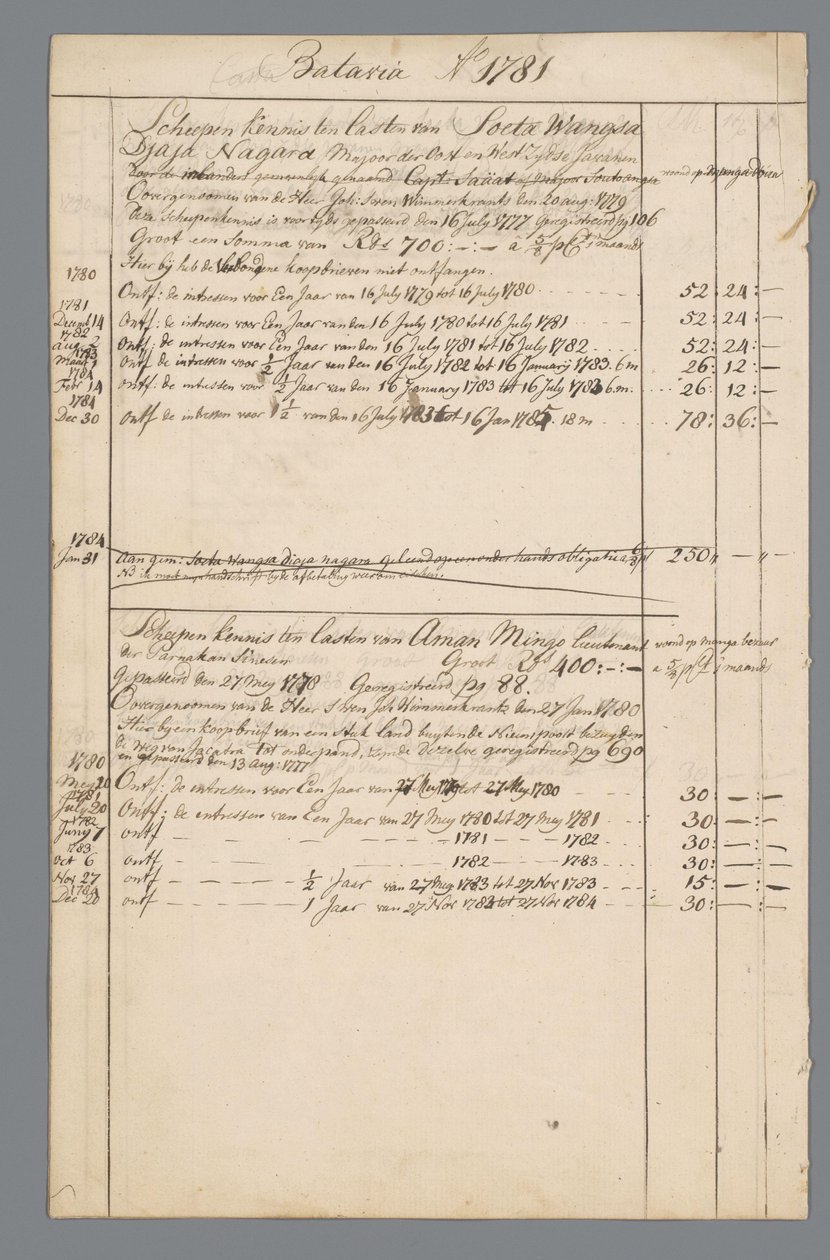 Batavia A° 1781
Scheepen kennis ten lasten van Soeta Wangsa
Djaja Nagara Majoor der Oost en West Zydse Javanen
door de inlanders gemeenlyk genaamd Capt: Saäat of Majoor Soeto angsa woond op Manga Doea
Overgenoomen van de Heer Joh: Swen Wimmerkrantz den 20 aug: 1779
deze Scheepenkennis is voortyds gepasseerd den 16 July 1777 Geregistreerd pg 106
Groot een Somma van Rds 700:—:— a 5/8 pCt 's maands
Hier bij heb de koopbrieven niet ontfangen.
1780 Ontf: de intressen voor Een Jaar van 16 July 1779 tot 16 July 1780 52: 24: —
1781 Decemb 14 Ontf: de intressen voor Een Jaar van den 16 July 1780 tot 16 July 1781 52: 24: —
1782 Aug: 2 Ontf: de intressen voor Een Jaar van den 16 July 1781 tot 16 July 1782 52: 24: —
1783 Maart 1 Ontf de intressen voor 1/2 Jaar van den 16 July 1782 tot 16 January 1783. 6 m 26: 12: —
1784 Febr 14 ontf: de intressen voor 1/2 Jaar van den 16 January 1783 tot 16 July 1783 6 m. 26: 12: —
1784 Dec 30 ontf de intressen voor 1 1/2 van den 16 July 1783 tot 16 Jan 1785. 18 m 78: 36: —
1784
Jan 31 Aan gem: Soeta Wangsa diaja nagara geleend op een onder hands obligatie a 250 " — " —
NB ik moet myn handschrift by de afbetaling weerom eischen.
Scheepen kennis ten lasten van Aman Mingo lieutenant woond op manga bezaar
der Parnakan Sineesen Groot Rds 400:—:— a 5/8 pCt 's maands
Gepasseerd den 27 mey 1778 Geregistreerd pg 88.
Overgenoomen van de Heer Swen Joh Wimmerkrantz den 27 Jan 1780
Hier by een koopbrief van een Stuk land buyten de Nieuwpoort bezuyden
de weg van Jacatra tot onderpand, zynde dezelve geregistreerd pg 690
en gepasseerd den 13 Aug: 1777
1780 Mey 20 Ontf: de intressen voor Een Jaar van 27 Mey 1779 tot 27 Mey 1780 30: — : —
1781 July 20 Ontf: de intressen van Een Jaar van 27 mey 1780 tot 27 mey 1781 30: — : —
1782 Juny 7 ontf — — — 1781 — — 1782 30: — : —
1783 oct 6 ontf — — — 1782 — — 1783 30: — : —
Nov 27 ontf — — — 1/2 Jaar van 27 mey 1783 tot 27 Nov 1783 15: — : —
1784 Dec 20 ontf — — — 1 Jaar van 27 Nov 1783 tot 27 Nov 1784 30: — : —